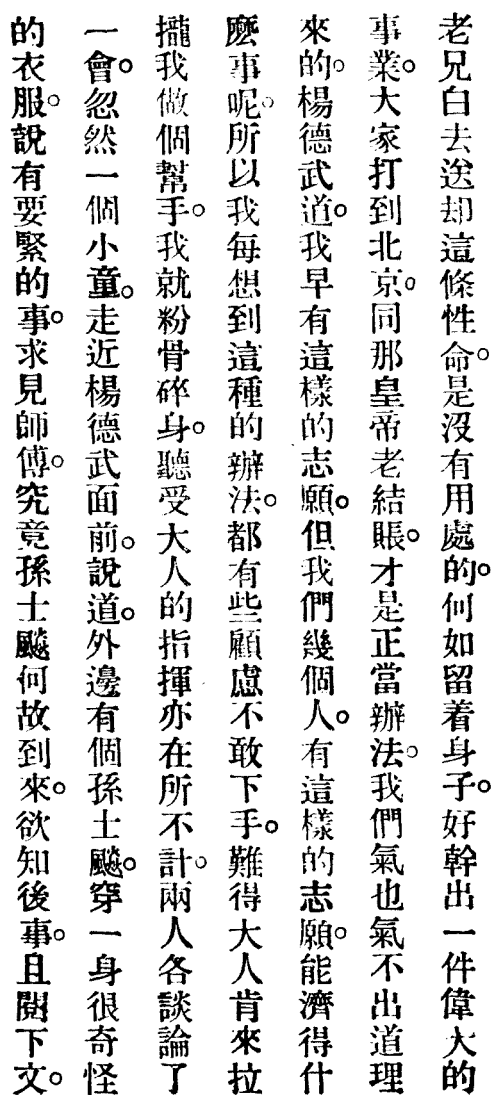 老兄白去送却這條性命。是沒有用處的。何如留着身子。好幹出一件偉大的
事業。大家打到北京。同那皇帝老結賬。才是正當辦法。我們氣也氣不出道理
來的。楊德武道。我早有這樣的志願。但我們幾個人。有這樣的志願。能濟得什
麽事呢。所以我每想到這種的辦法。都有些顧慮不敢下手。難得大人肯來拉
攏我做個幫手。我就粉骨碎身。聽受大人的指揮亦在所不計。兩人各談論了
一會。忽然一個小童。走近楊德武面前。說道。外邊有個孫士飈。穿一身很奇怪
的衣服。說有要緊的事。求見師傅。究竟孫士飈何故到來。欲知後事。且閱下文。